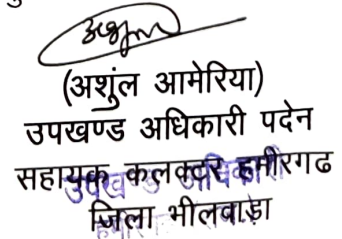 (अशुंल आमेरिया)
उपखण्ड अधिकारी पदेन
सहायक कलक्टर हमीरगढ
जिला भीलवाड़ा